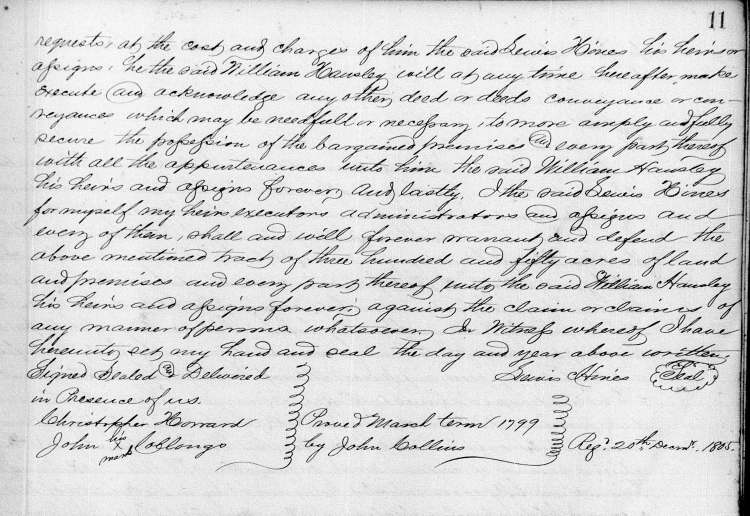 11
requests, at the cost and charges of him the said Lewis Hines his heirs or
assigns, he the said William Hansley will at any time hereafter make
execute and acknowledge any other deed or deeds conveyance or con-
veyances which may be needfull or necessary, to more amply and fully
secure the possession of the bargained premises and every part thereof
with all the appurtenances unto him the said William Hansley
his heirs and assigns forever, And lastly, I the said Lewis Hines
for myself my heirs executors administrators and assigns and
every of them, shall and will forever warrant and defend the
above mentioned tract of three hundred and fifty acres of land
and premises and every part thereof unto the said William Hansley
his heirs and assigns forever, against the claim or claims of
any manner of persons whatsoever, In Witness whereof I have
hereunto set my hand and seal the day and year above written,
Signed Sealed & Delivered Lewis Hines Seal
in Presence of us.
Christopher Howard Proved March term 1799
John his x mark by John Collins Reg.d 20th Decemr. 1805.